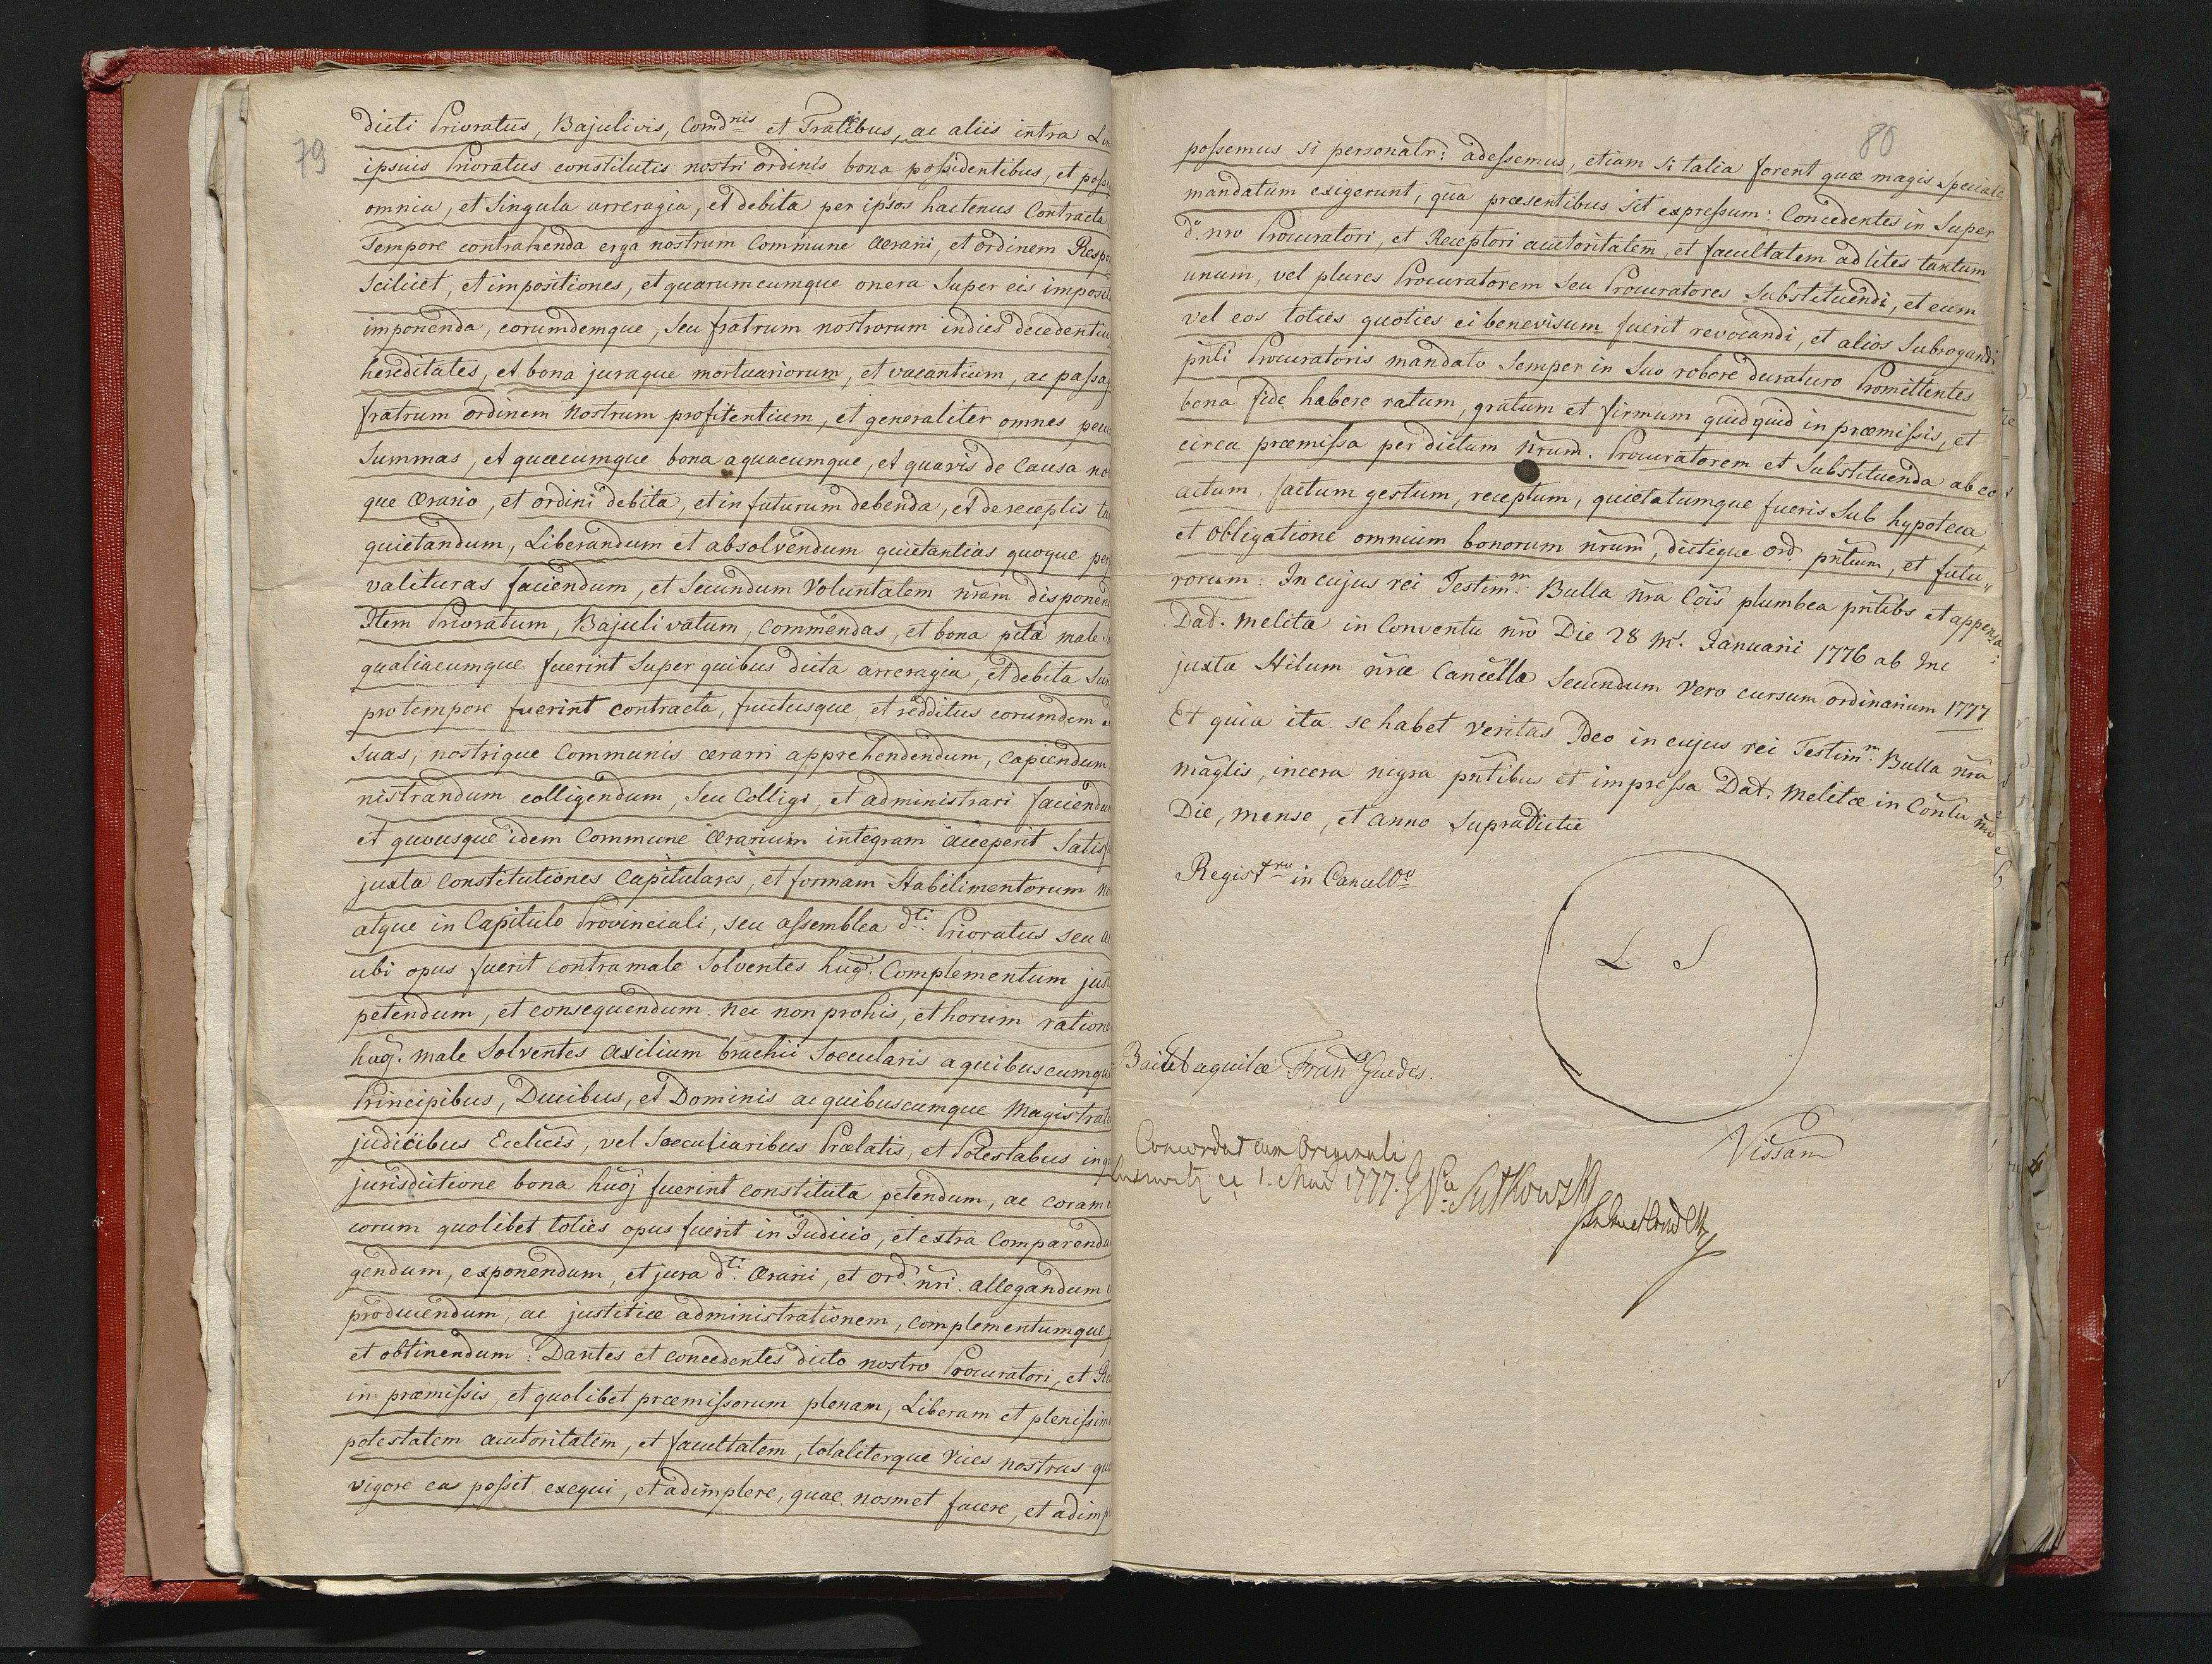 79
dicti Prioratus, Bajulivis, Comdriis et Fratribus, ac aliis intra
ipsuis Prioratus constitutis nostri ordinis bona possidentibus, et
omnia, et Singula arreragia, et debita per ipsos hactenus Contracta
Tempore contrahenda erga nostrum Commune Aerarii, et ordinem
Scilicet, et impositiones, et quarumcumque onera Super eis
imponenda, eorumdemque, Seu fratrum nostrorum indies
hereditates, et bona juraque mortuariorum, et vacantium, ac
fratrum ordinem Nostrum profitentium, et generaliter omnes
Summas, et quaecumque bona aquacumque, et quavis de Causa
que Aerario, et ordini debita, et in futurum debenda, et de receptis
quietandum, Liberandum et absolvendum quietantias quoque
valituras faciendum, et Secundum Voluntatem nram
Item Prioratum, Bajulivatum, Commendas, et bona pita male
qualiacumque fuerint Super quibus dicta arreragia, et debita
pro tempore fuerint contracta, fructusque, et redditus eorumdem
Suas, nostrique Communis aerarii apprehendendum, capiendum
nistrandum colligendum, Seu Colligi, et administrari
et quousque idem Commune Aerarium integram acceperit
juxta Constitutiones Capitulares, et formam Stabilimentorum
atque in Capitulo Provinciali, seu assemblea dti Prioratus seu
ubi opus fuerit contra male Solventes huj. Complementum
petendum, et consequendum. nec non pro his, et horum
huj. male Solventes axilium brachii Soecularis
Principibus, Ducibus, et Dominis ac quibuscumque
judicibus Eccliis, vel Saeculiaribus Praelatis, et Potestabus
jurisdictione bona huj fuerint constituta petendum, ac coram
eorum quolibet toties opus fuerit in Judicio, et extra
gendum, exponendum, et jura dti Aerarii, et ord. nri. allegandum
producendum, ac justitiae administrationem, complementumque
et obtinendum: Dantes et concedentes dicto nostro Procuratori, et
in praemissis, et quolibet praemissorum plenam, Liberam et
potestatem auctoritatem, et facultatem, totaliterque Vices nostras
vigore ea possit exequi, et adimplere, quae nosmet facere, et
80
possemus si personalr: adessemus, etiam si talia forent quae magis speciale
mandatum exigerunt, qua praesentibus sit expressum: Concedentes in Super
do. nro Procuratori, et Receptori auctoritatem, et facultatem ad lites tantum
unum, vel plures Procuratorem Seu Procuratores Substituendi, et eum
vel eos toties quoties ei benevisum fuerit revocandi, et alios Subrogandi
pnti Procuratoris mandato Semper in Suo robore duraturo Promittentes
bona fide habere ratum, gratum et firmum quidquid in praemissis, et
circa praemissa per dictum nrum. Procuratorem et Substituenda ab eo
actum, factum gestum, receptum, quietatumque fueris Sub hypoteca,
et Obligatione omnium bonorum nrum, dictique ord. pntium, et futu„
rorum: In cujus rei Testim.m Bulla nra Cois plumbea pntibs et appensa
Dad. Melita in Conventu nro Die 28 Ms. Januarii 1776 ab Inc
juxta Stilum nrae Cancellae Secundum Vero cursum ordinarium 1777
Et quia ita se habet Veritas Ideo in cujus rei Testim.m Bulla nra
Maglis, incera nigra pntibus et impressa Dat. Melitae in Contu nro
Die, Mense, et anno Supradictie
Registtru in Cancellra
L. S
Baiet aquilae Fran Guedes.
Vissam
Concordat cum Originali
1. Mai 1777.